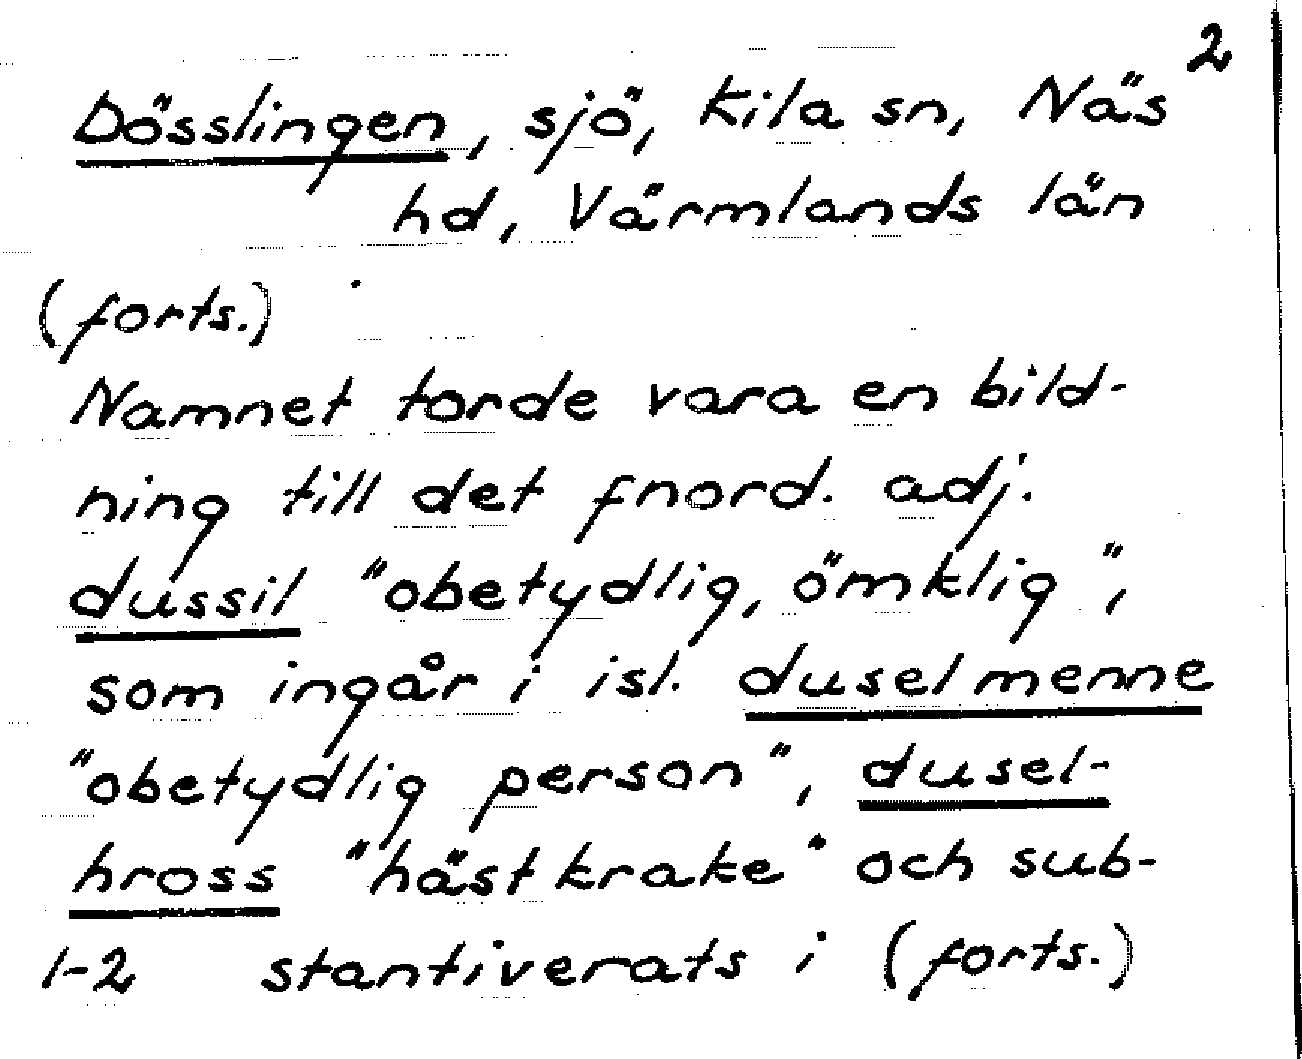 2
Dösslingen, sjö, Kila sn, Näs
hd, Värmlands län
(forts.)
Namnet torde vara en bild-
ning till det fnord. adj.
dussil "obetydlig, ömklig",
som ingår i isl. duselmenne
"obetydlig person", dusel-
hross "hästkrake" och sub-
1-2 stantiverats i (forts.)